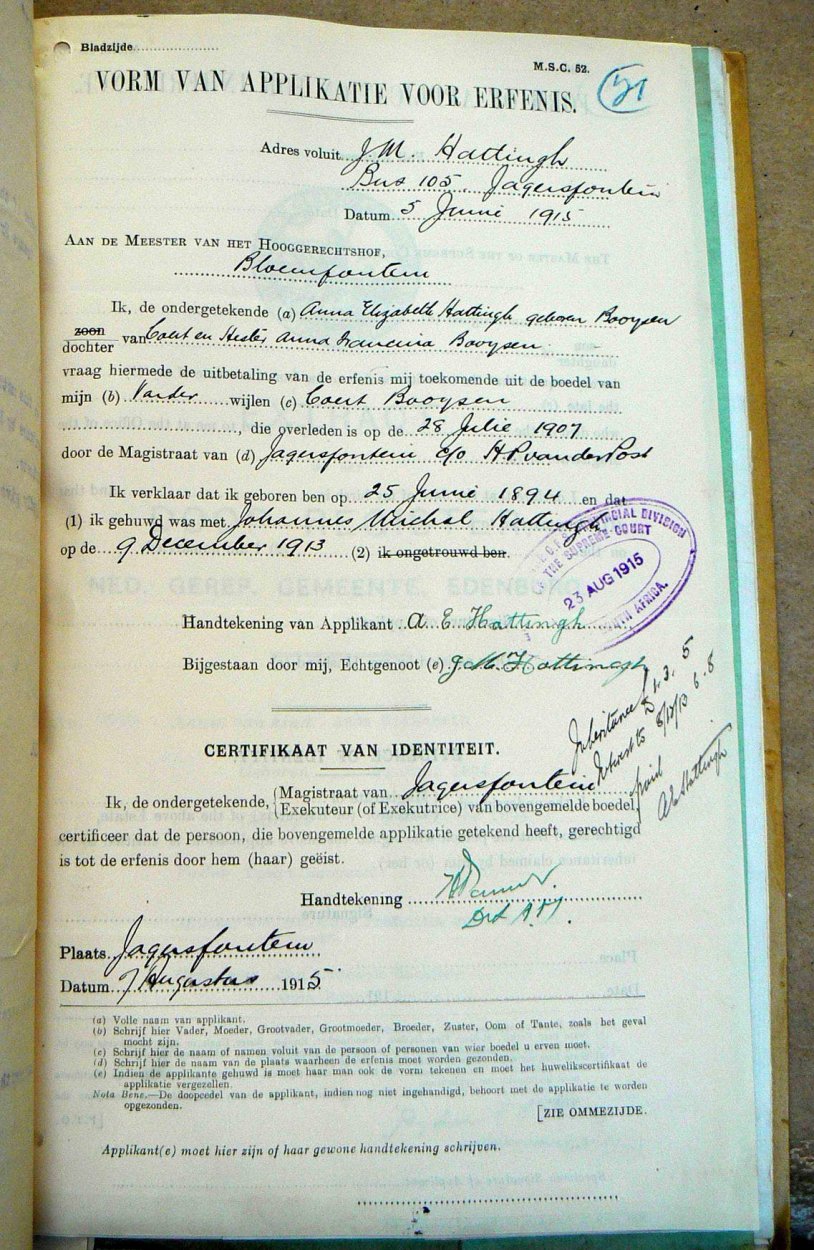 Bladzijde
M.S.C. 52.
51
VORM VAN APPLIKATIE VOOR ERFENIS.
Adres voluit J.M. Hattingh
Bus 105 Jagersfontein
Datum 5 Junie 1915
AAN DE MEESTER VAN HET HOOGGERECHTSHOF,
Bloemfontein
Ik, de ondergetekende (a) Anna Elizabeth Hattingh geboren Booysen
zoon
dochter van Coert en Hester Anna Francina Booysen
vraag hiermede de uitbetaling van de erfenis mij toekomende uit de boedel van
mijn (b) Vader wijlen (c) Coert Booysen
, die overleden is op de 28 Julie 1907
door de Magistraat van (d) Jagersfontein c/o H.P. van der Post
Ik verklaar dat ik geboren ben op 25 Junie 1894 en dat
(1) ik gehuwd was met Johannes Michal Hattingh
op de 9 December 1913 (2) ik ongetrouwd ben.
PROVINCIAL DIVISION
THE SUPREME COURT
23 AUG 1915
SOUTH AFRICA.
Handtekening van Applikant A E Hattingh
Bijgestaan door mij, Echtgenoot (e) J. M. Hattingh
Inheritance £1. 3. 5
Interest to 8/12/13 6. 8
paid
Hattingh
CERTIFIKAAT VAN IDENTITEIT.
Ik, de ondergetekende, Magistraat van Jagersfontein
Exekuteur (of Exekutrice) van bovengemelde boedel,
certificeer dat de persoon, die bovengemelde applikatie getekend heeft, gerechtigd
is tot de erfenis door hem (haar) geëist.
Handtekening
Plaats Jagersfontein
Datum 7 Augustus 1915
(a) Volle naam van applikant.
(b) Schrijf hier Vader, Moeder, Grootvader, Grootmoeder, Broeder, Zuster, Oom of Tante, zoals het geval
mocht zijn.
(c) Schrijf hier de naam of namen voluit van de persoon of personen van wier boedel u erven moet.
(d) Schrijf hier de naam van de plaats waarheen de erfenis moet worden gezonden.
(e) Indien de applikante gehuwd is moet haar man ook de vorm tekenen en moet het huwelikscertifikaat de
applikatie vergezellen.
Nota Bene.—De doopcedel van de applikant, indien nog niet ingehandigd, behoort met de applikatie te worden
opgezonden.
[ZIE OMMEZIJDE.
Applikant(e) moet hier zijn of haar gewone handtekening schrijven.